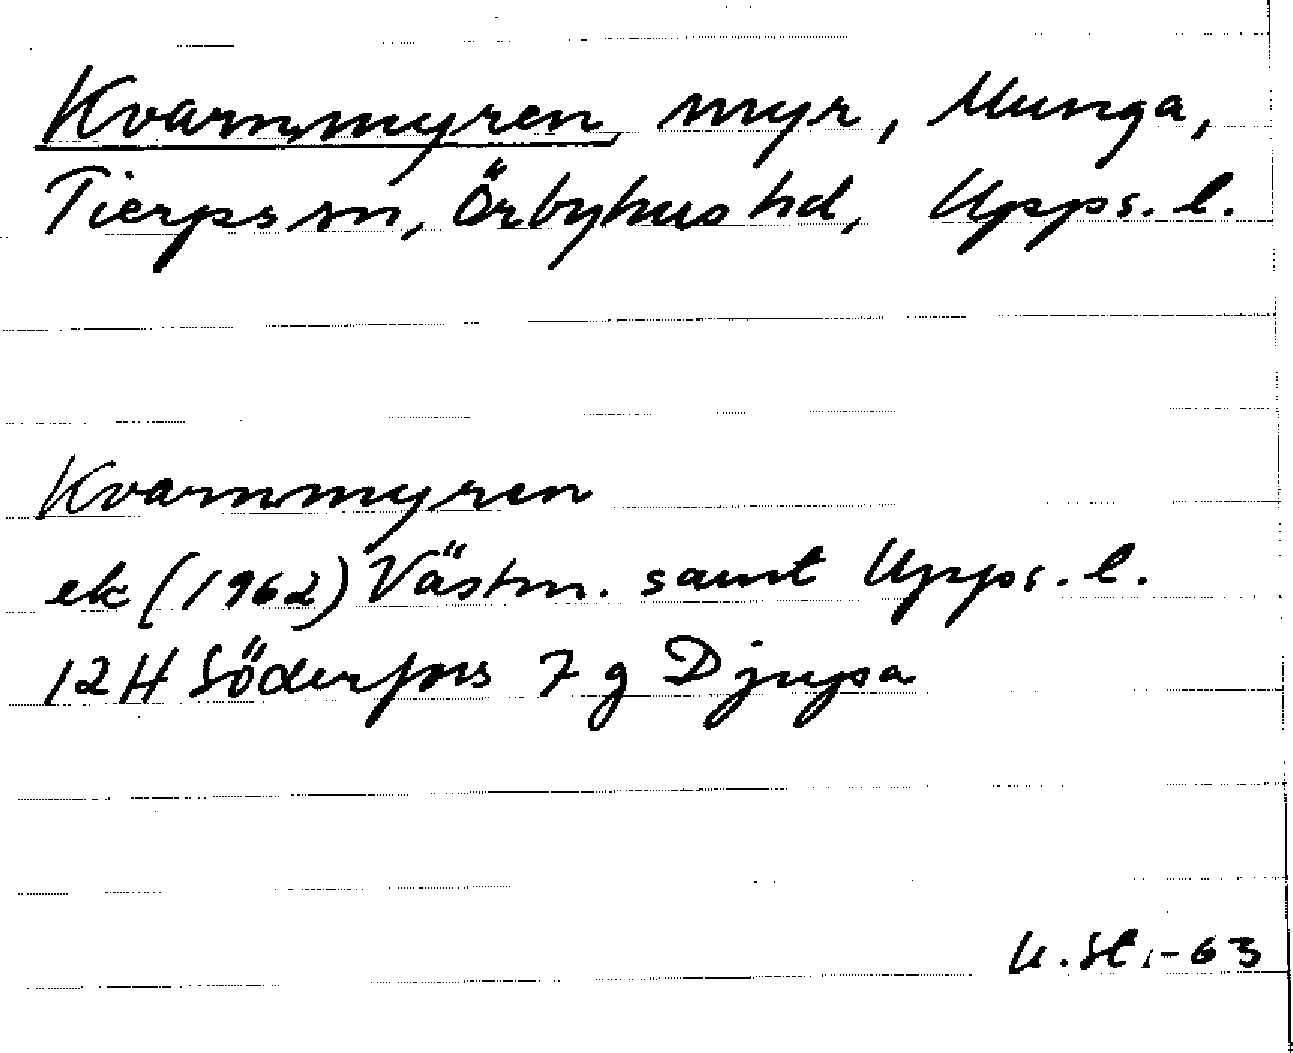 Kvarnmyren, myr, Munga,
Tierps sn, Örbyhus hd, Upps. l.
Kvarnmyren
ek (1962) Västm. samt Upps. l.
12H Söderfors 7 g Djupa